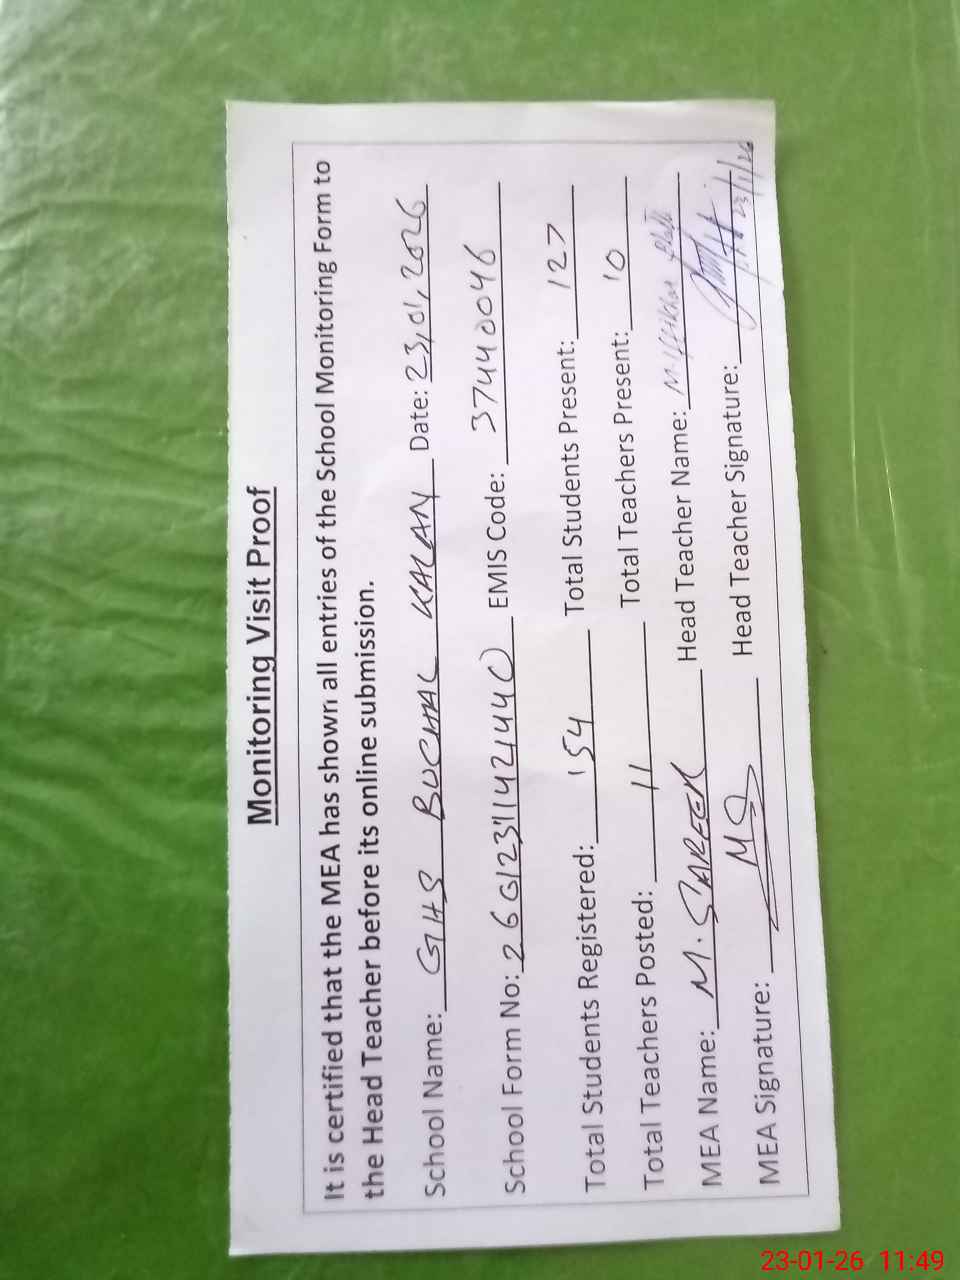 Monitoring Visit Proof
It is certified that the MEA has shown all entries of the School Monitoring Form to
the Head Teacher before its online submission.
School Name: GHS BUCHAL KALAN Date: 23,01,2026
School Form No: EMIS Code: 37440046
Total Students Registered: 154 Total Students Present: 127
Total Teachers Posted: 11 Total Teachers Present: 10
MEA Name: M. SAREEK Head Teacher Name:
MEA Signature: MS Head Teacher Signature: 23/1/26
23-01-26 11:49